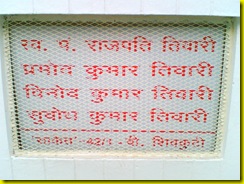 स्व. पं. राजपति तिवारी
प्रमोद कुमार तिवारी
विनोद कुमार तिवारी
सुबोध कुमार तिवारी
"साकेत" 42/1 - बी. शिवकुटी